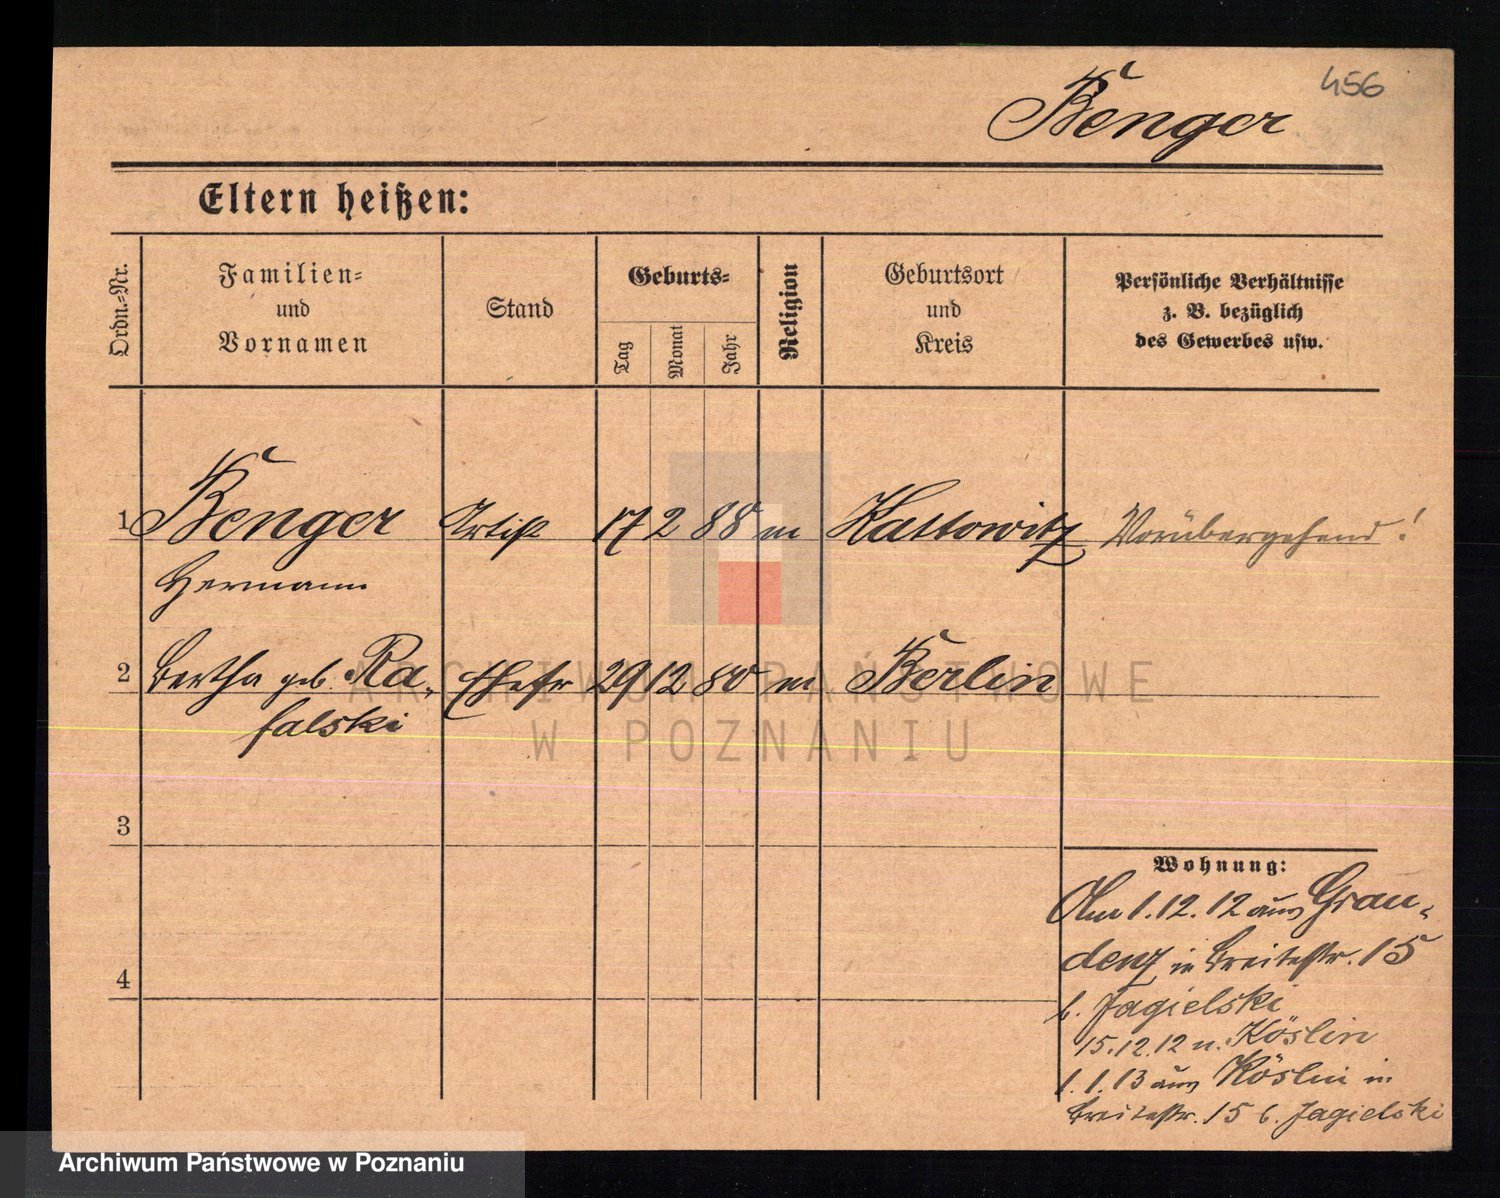 456
Benger
Eltern heißen:
Ordn.-Nr.
Familien-
und
Vornamen
Stand
Geburts-
Tag
Monat
Jahr
Religion
Geburtsort
und
Kreis
Persönliche Verhältnisse
z. B. bezüglich
des Gewerbes usw.
1 Benger Artist 17 2 88 m Kattowitz Vorübergehend!
Hermann
2 Bertha geb. Ra- Ehefr 29 12 80 m Berlin
falski
3
4
Wohnung:
Am 1.12.12 aus Grau-
denz in Breitestr. 15
b. Jagielski
15.12.12 n. Köslin
1.1.13 aus Köslin in
Breitestr. 15 b. Jagielski
ARCHIWUM PAŃSTWOWE
W POZNANIU
Archiwum Państwowe w Poznaniu